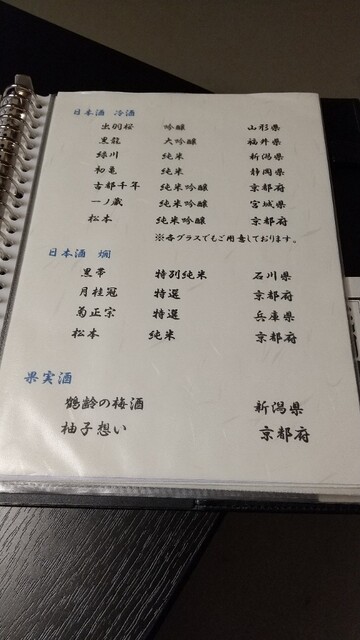 日本酒 冷酒
出羽桜 吟醸 山形県
黒龍 大吟醸 福井県
緑川 純米 新潟県
初亀 純米 静岡県
古都千年 純米吟醸 京都府
一ノ蔵 純米吟醸 宮城県
松本 純米吟醸 京都府
※各グラスでもご用意しております。
日本酒 燗
黒帯 特別純米 石川県
月桂冠 特選 京都府
菊正宗 特選 兵庫県
松本 純米 京都府
果実酒
鶴齢の梅酒 新潟県
柚子想い 京都府